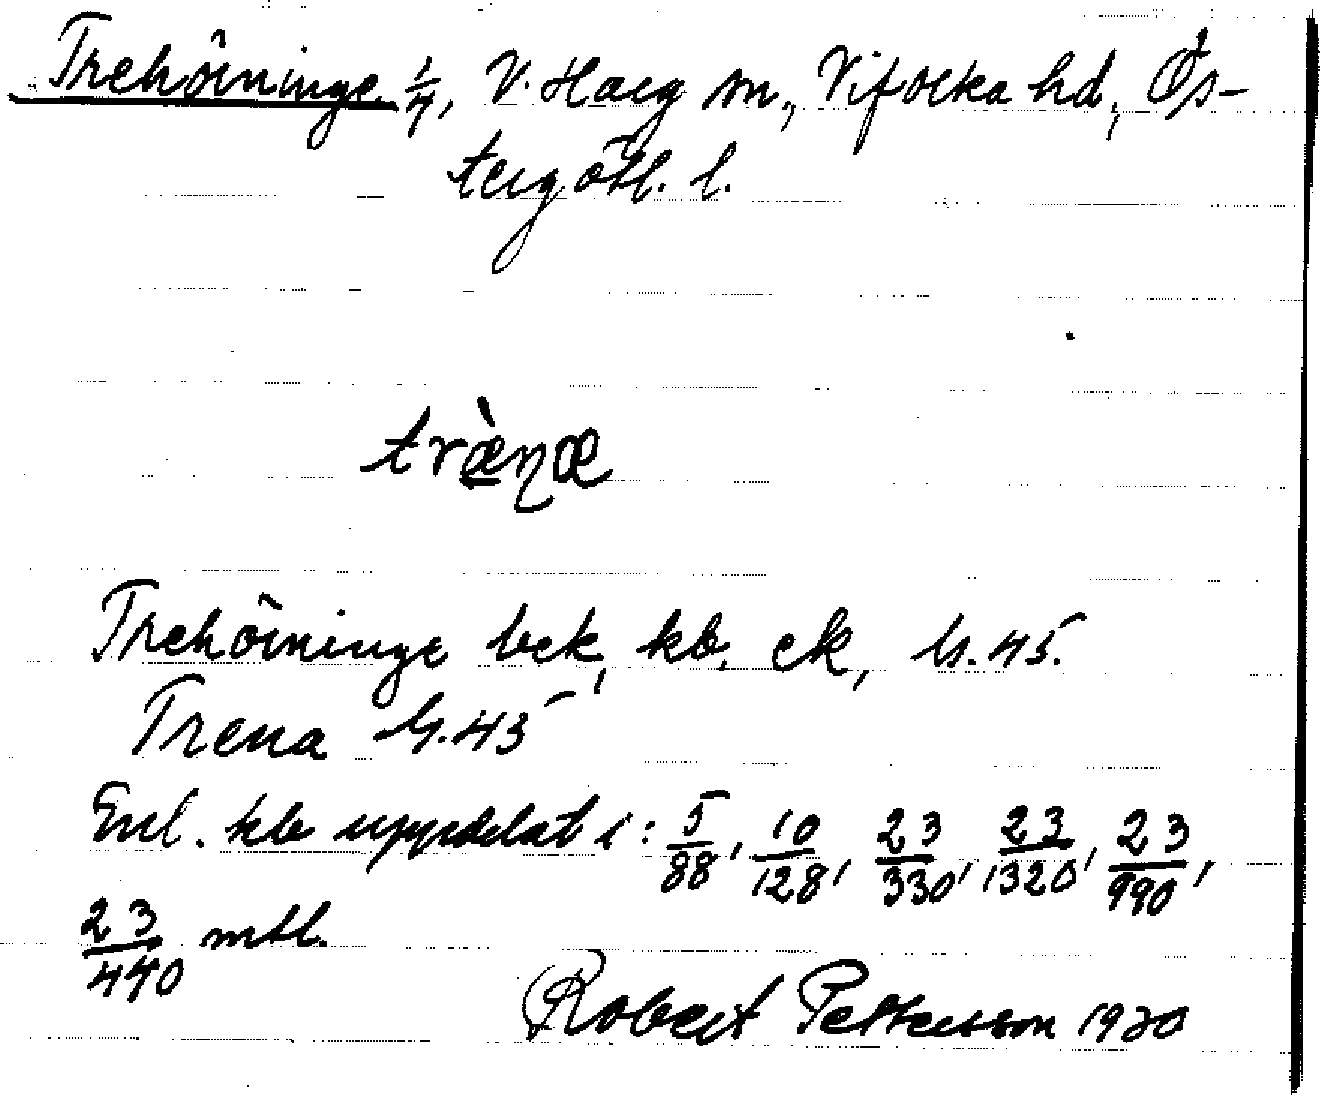 Trehörninge 1/4, V. Harg sn, Vifolka hd, Ös-
tergötl. l.
træ̀næ
Trehörninge bek, kb, ek, Gs. 45.
Trena G. 45
Enl. kb uppdelat i: 5/88, 10/128, 23/330, 23/1320, 23/990,
23/440 mtl.
Robert Pettersson 1920